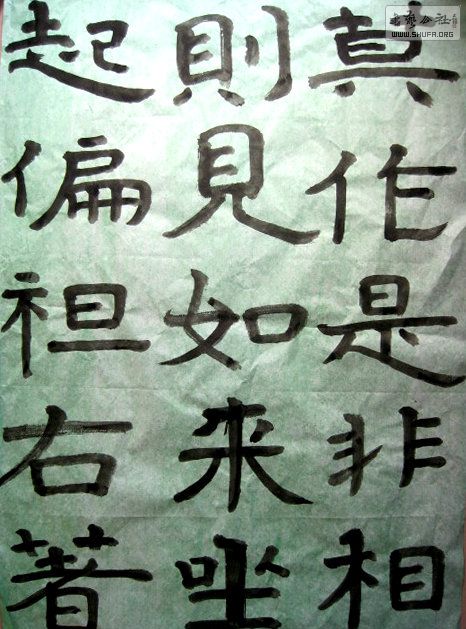 莫作是非相
則見如来坐
起偏袒右著
書藝公社
WWW.SHUFA.ORG